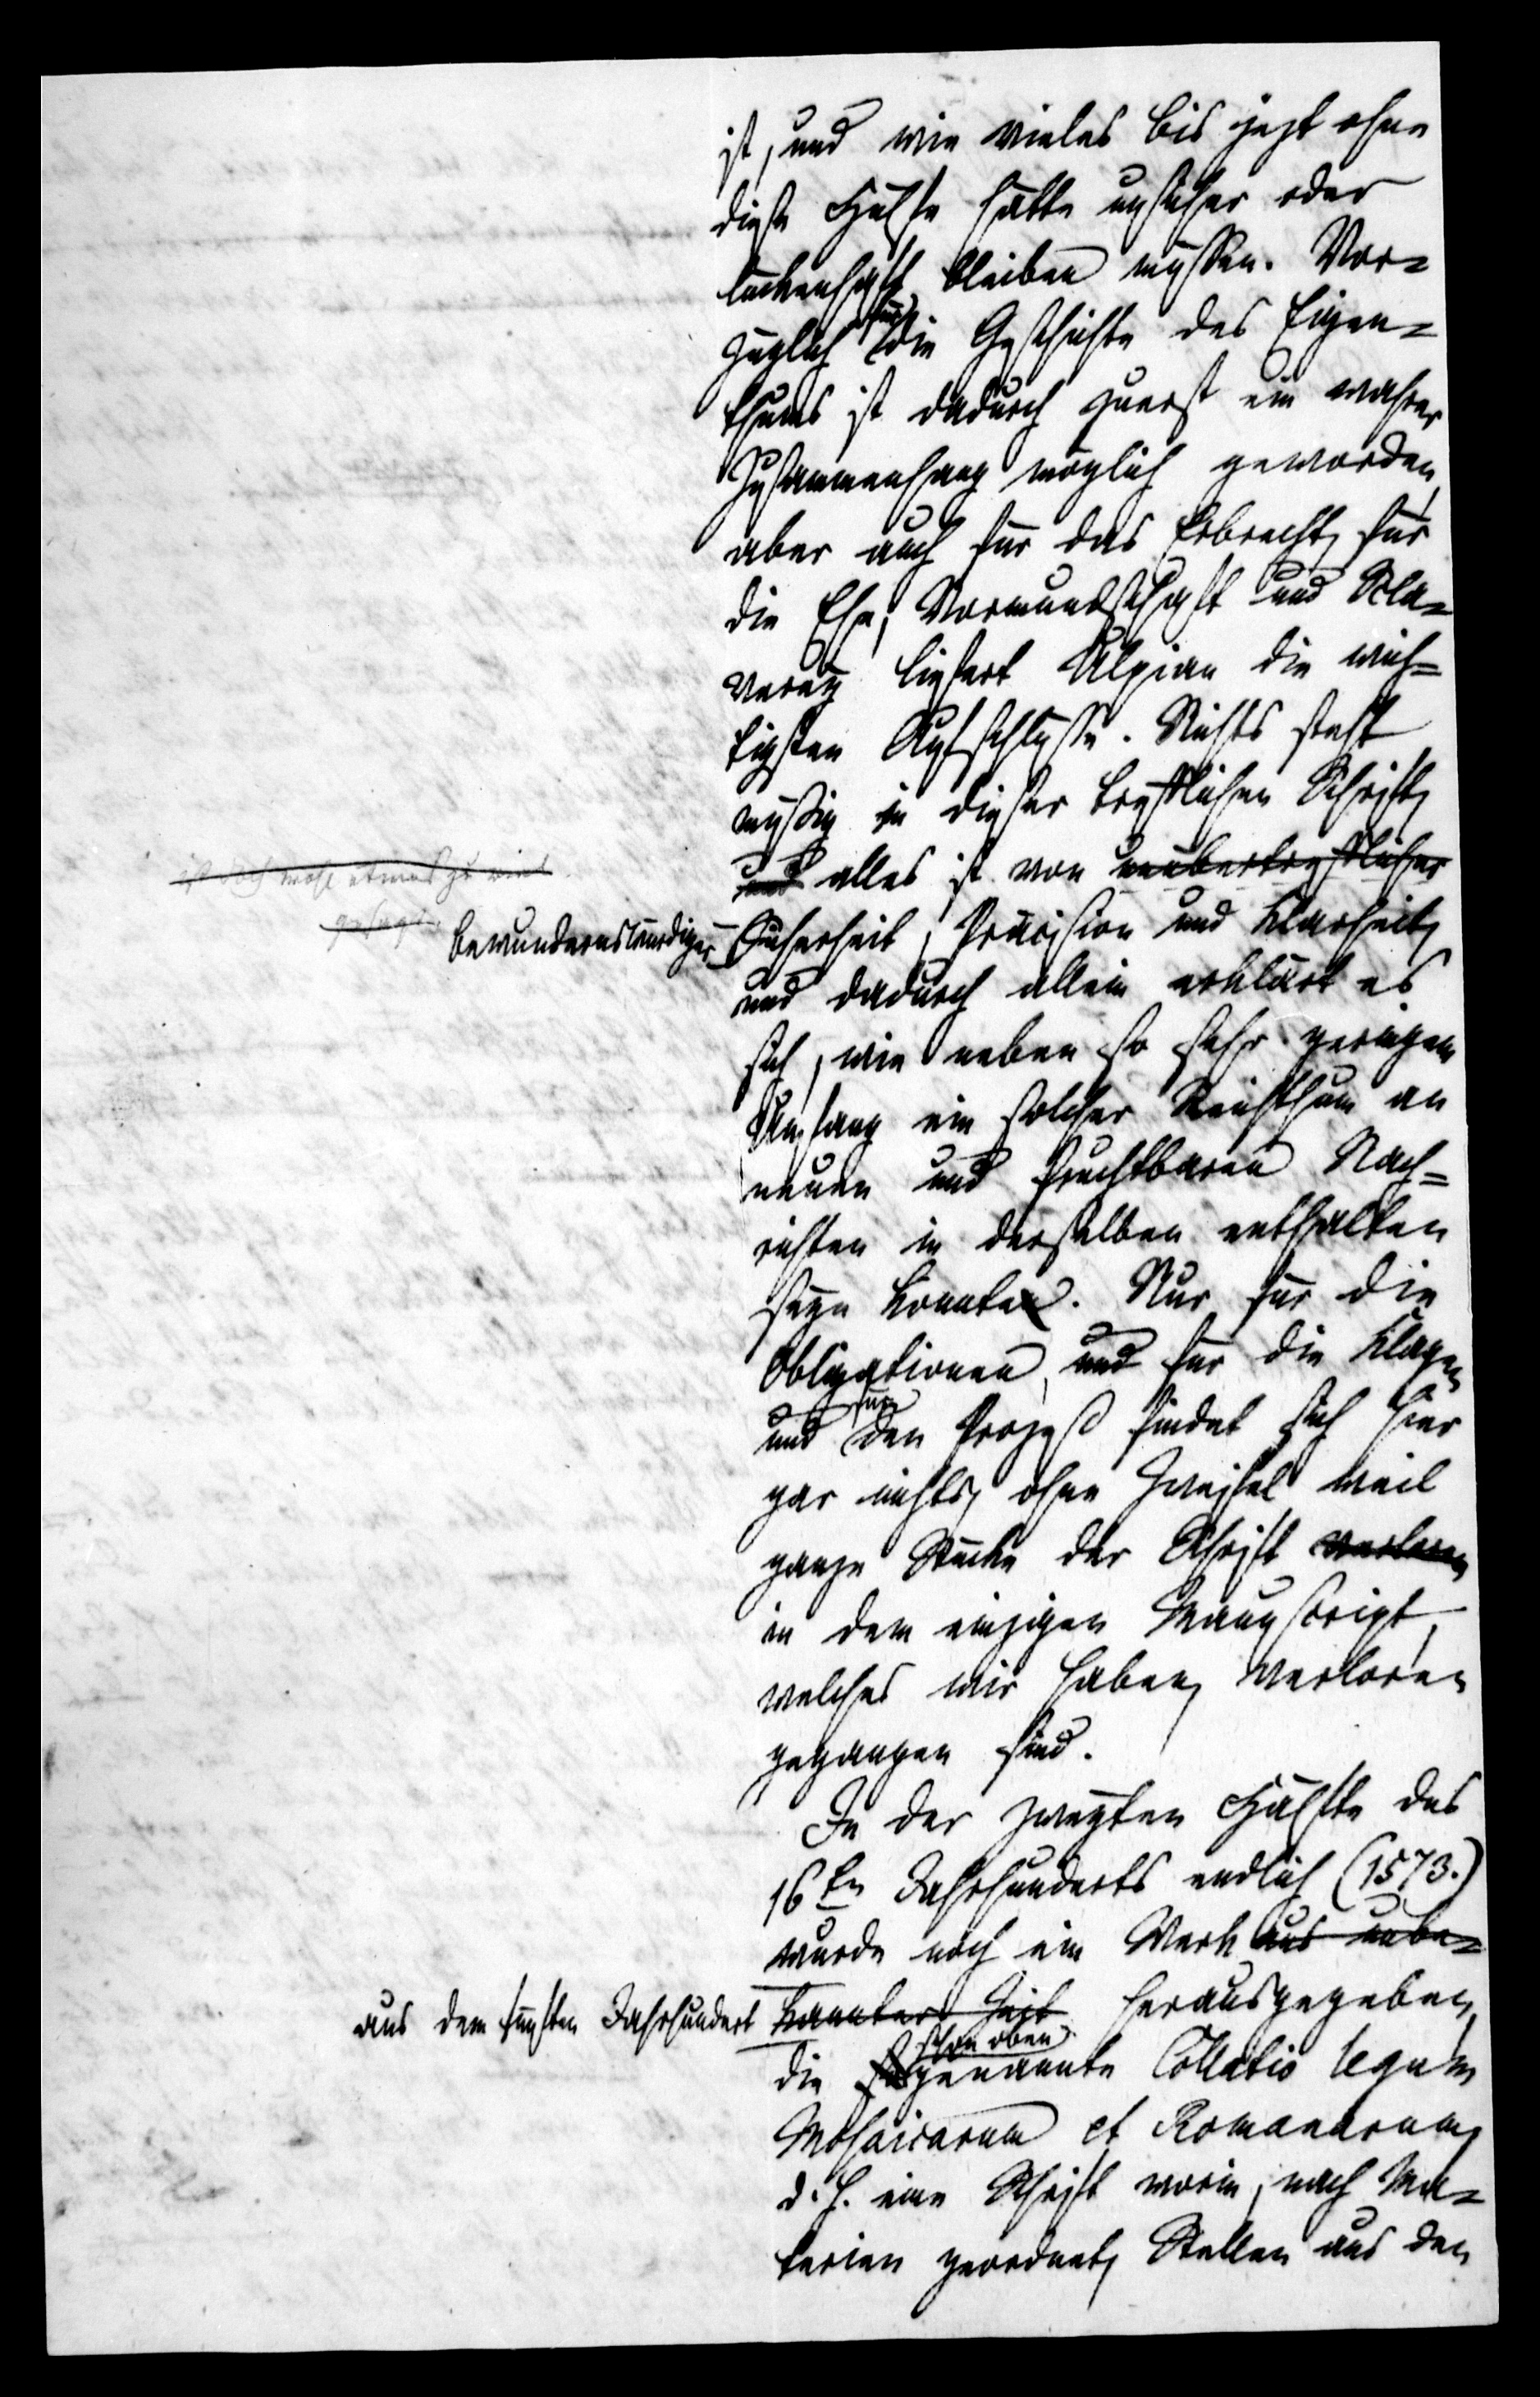 ist, und wie vieles bis jezt ohne
diese Hülfe hätte unsicher oder
lückenhaft bleiben müssen. Vor=
für
züglich die Geschichte des Eigen=
thums ist dadurch zuerst ein wahrer
Zusammenhang möglich geworden,
aber auch für das Erbrecht, für
die Ehe, Vormundschaft und Scla=
verey liefert Ulpian die wich=
tigsten Aufschlüsse. Nichts steht
müßig in dieser trefflichen Schrift,
und alles ist von unübertrefflicher
ist doch wohl etwas zu viel
gesagt.
bewundernswürdiger
Sicherheit, Präcision und Klarheit,
und dadurch allein erklärt es
sich, wie neben so sehr geringem
Umfang ein solcher Reichthum an
neuen und fruchtbaren Nach=
richten in derselben enthalten
seyn konnte. Nur für die
Obligationen, und für die Klagen
für
und den Prozeß findet sich hier
gar nichts, ohne Zweifel weil
ganze Stücke der Schrift verloren
in dem einzigen Manuscript,
welches wir haben, verloren
gegangen sind.
In der zweyten Hälfte des
16ten Jahrhunderts endlich (1573.)
wurde noch ein Werk aus unbe=
aus dem fünften Jahrhundert
kannter Zeit herausgegeben,
schon oben
die sogenannte Collatio legum
Mosaicarum et Romanarum,
d. h. eine Schrift worin, nach Ma=
terien geordnet, Stellen aus den